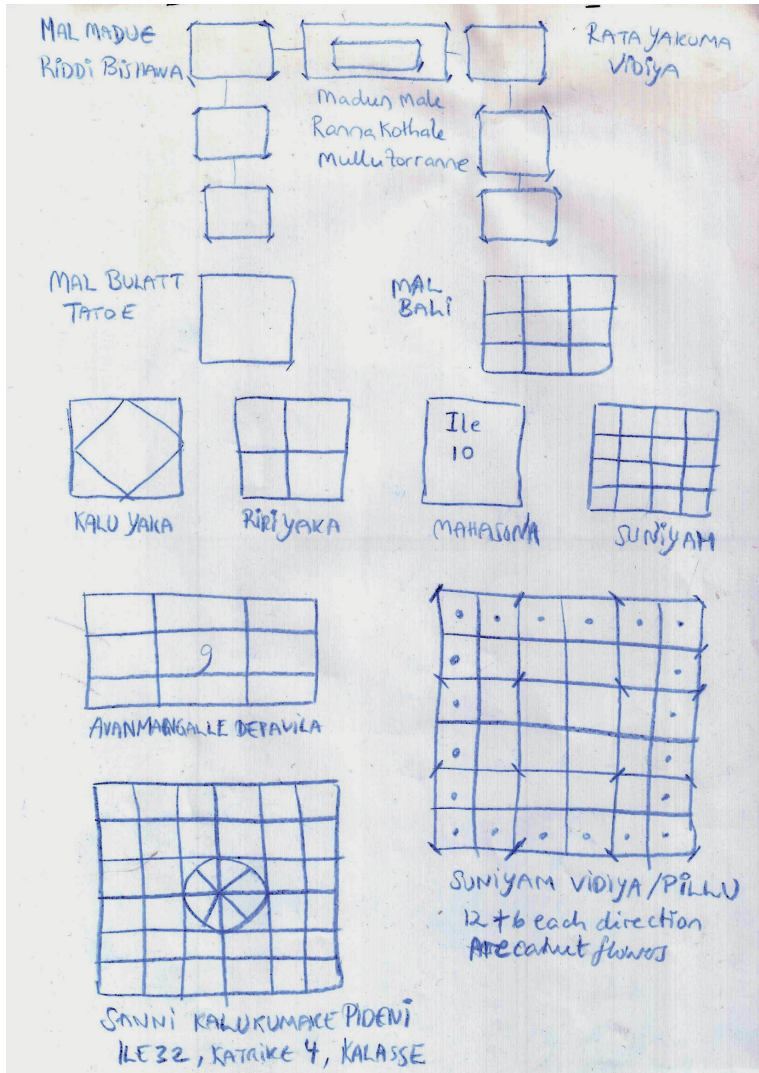 MAL MADUE
RIDDI BISHAWA
RATA YAKUMA
VIDIYA
Madun male
Ranna Kothale
Mullu Torranne
MAL BULATT
TATOE
MAL
BALI
Ile
10
KALU YAKA
RIRI YAKA
MAHASONA
SUNIYAM
9
AVANMANGALLE DEPAVILA
SUNIYAM VIDIYA/PILLU
12 + 6 each direction
Arecanut flowers
SANNI KALUKUMARE PIDENI
ILE 32, KATRIKE 4, KALASSE